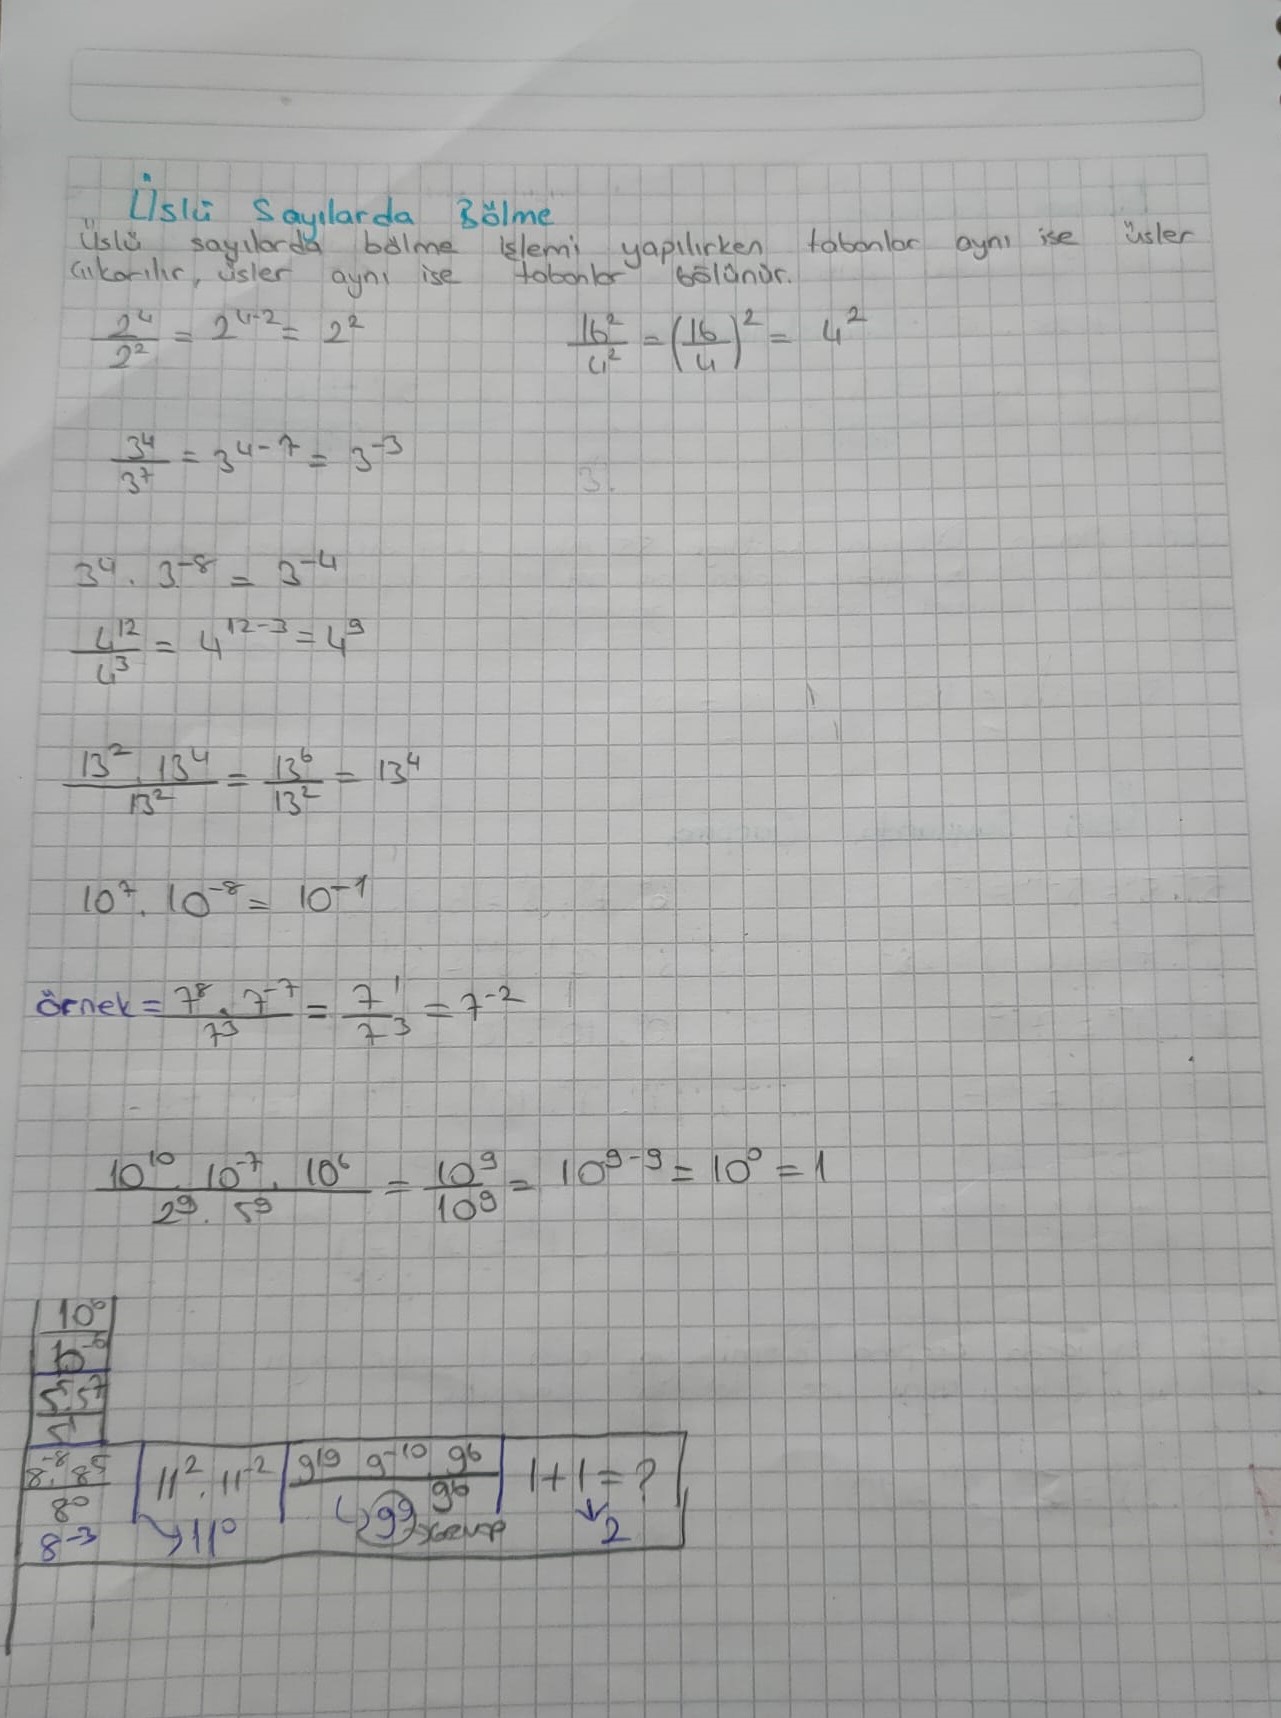 Üslü Sayılarda Bölme
Üslü sayılarda bölme işlemi yapılırken tabanlar aynı ise üsler
çıkarılır, üsler aynı ise tabanlar bölünür.
2⁴/2² = 2⁴⁻² = 2²    16²/4² = (16/4)² = 4²
3⁴/3⁷ = 3⁴⁻⁷ = 3⁻³    3.
3⁴ . 3⁻⁸ = 3⁻⁴
4¹²/4³ = 4¹²⁻³ = 4⁹
13² . 13⁴/13² = 13⁶/13² = 13⁴
10⁷ . 10⁻⁸ = 10⁻¹
örnek = 7⁸ . 7⁻⁷/7³ = 7¹/7³ = 7⁻²
10¹⁰ . 10⁻⁷ . 10⁶/2⁹ . 5⁹ = 10⁹/10⁹ = 10⁹⁻⁹ = 10⁰ = 1
10⁰
5⁵.5⁷
8⁻⁸.8⁵/8⁰    11² . 11⁻²    9¹⁹ 9⁻¹⁰ 9⁶/9⁶    1+1=?
8⁻³    11⁰    9⁹ cevap    2